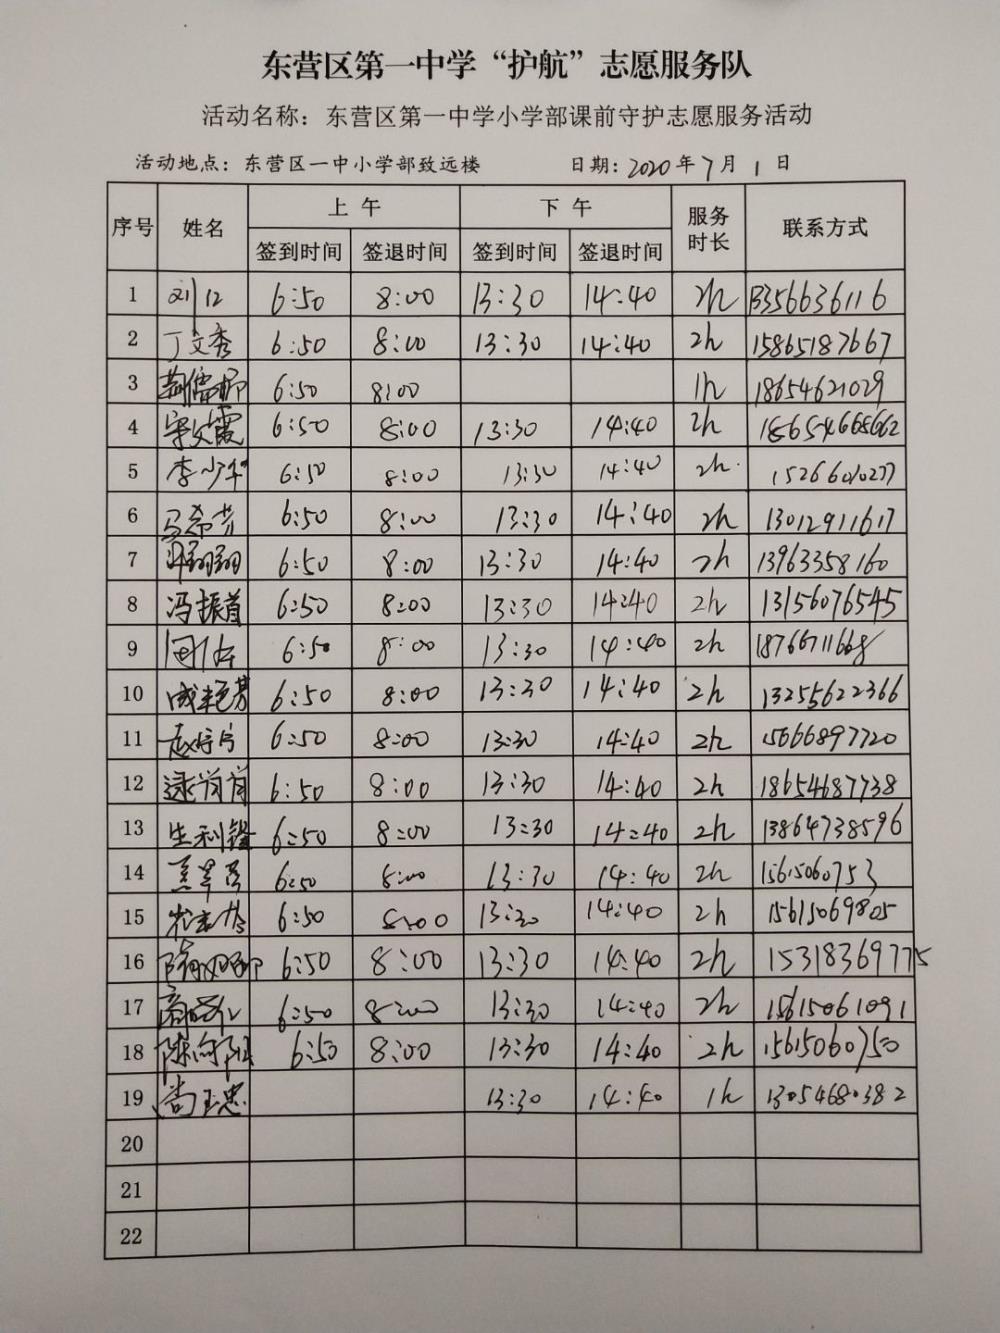 东营区第一中学“护航”志愿服务队
活动名称：东营区第一中学小学部课前守护志愿服务活动
活动地点：东营区一中小学部致远楼 日期：2020年7月1日
序号 姓名 上午 下午 服务时长 联系方式
签到时间 签退时间 签到时间 签退时间
1 刘江 6:50 8:00 13:30 14:40 2h 13356636116
2 丁文秀 6:50 8:00 13:30 14:40 2h 15865187667
3 6:50 8:00 1h 18654621029
4 宋文霞 6:50 8:00 13:30 14:40 2h
5 李少华 6:50 8:00 13:30 14:40 2h. 15266010277
6 马希芳 6:50 8:00 13:30 14:40 2h 13012911617
7 翔翔 6:50 8:00 13:30 14:40 2h 13963358160
8 冯振首 6:50 8:00 13:30 14:40 2h 13156076545
9 6:50 8:00 13:30 14:40 2h 18766711668
10 成艳芳 6:50 8:00 13:30 14:40 2h 13255622366
11 6:50 8:00 13:30 14:40 2h 15666897720
12 逯肖肖 6:50 8:00 13:30 14:40 2h 18654687738
13 生利锋 6:50 8:00 13:30 14:40 2h 13864738596
14 6:50 8:00 13:30 14:40 2h 15615060753
15 6:50 8:00 13:30 14:40 2h 15615069805
16 6:50 8:00 13:30 14:40 2h 15318369775
17 6:50 8:00 13:30 14:40 2h 15615061091
18 陈向阳 6:50 8:00 13:30 14:40 2h 15615060750
19 尚玉忠 13:30 14:40 1h 13054680382
20
21
22